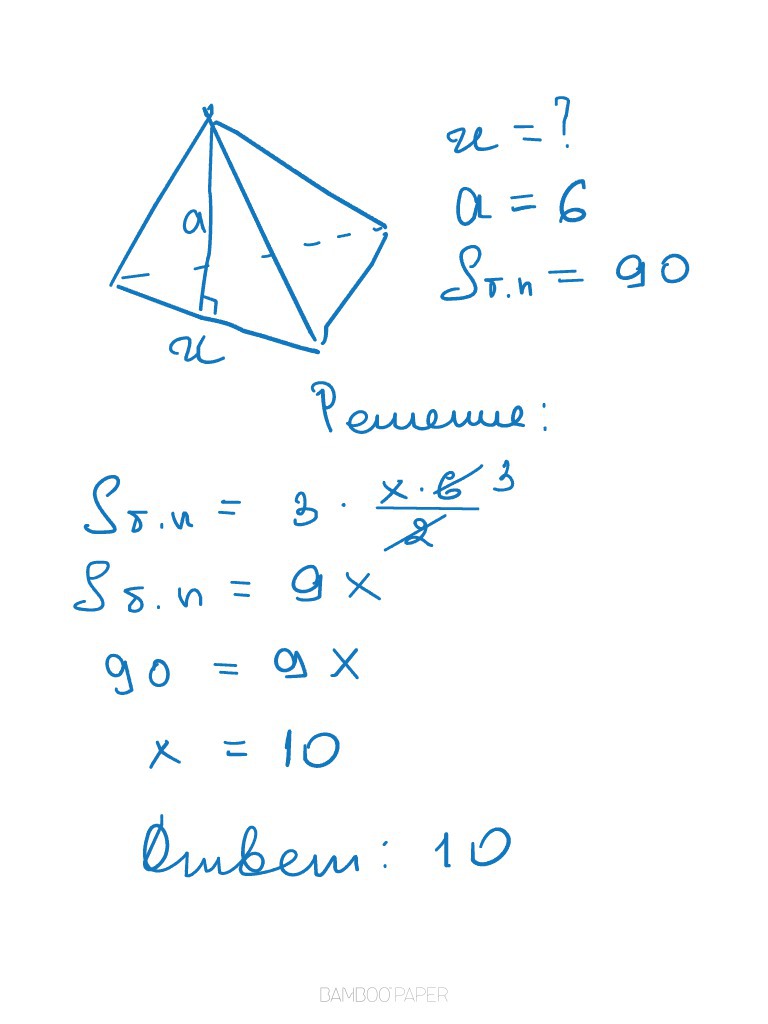 x = ?
a = 6
Sб.п = 90
a
x
Решение:
Sб.п = 3 · x · 6 3 / 2
Sб.п = 9x
90 = 9x
x = 10
Ответ: 10
BAMBOO PAPER